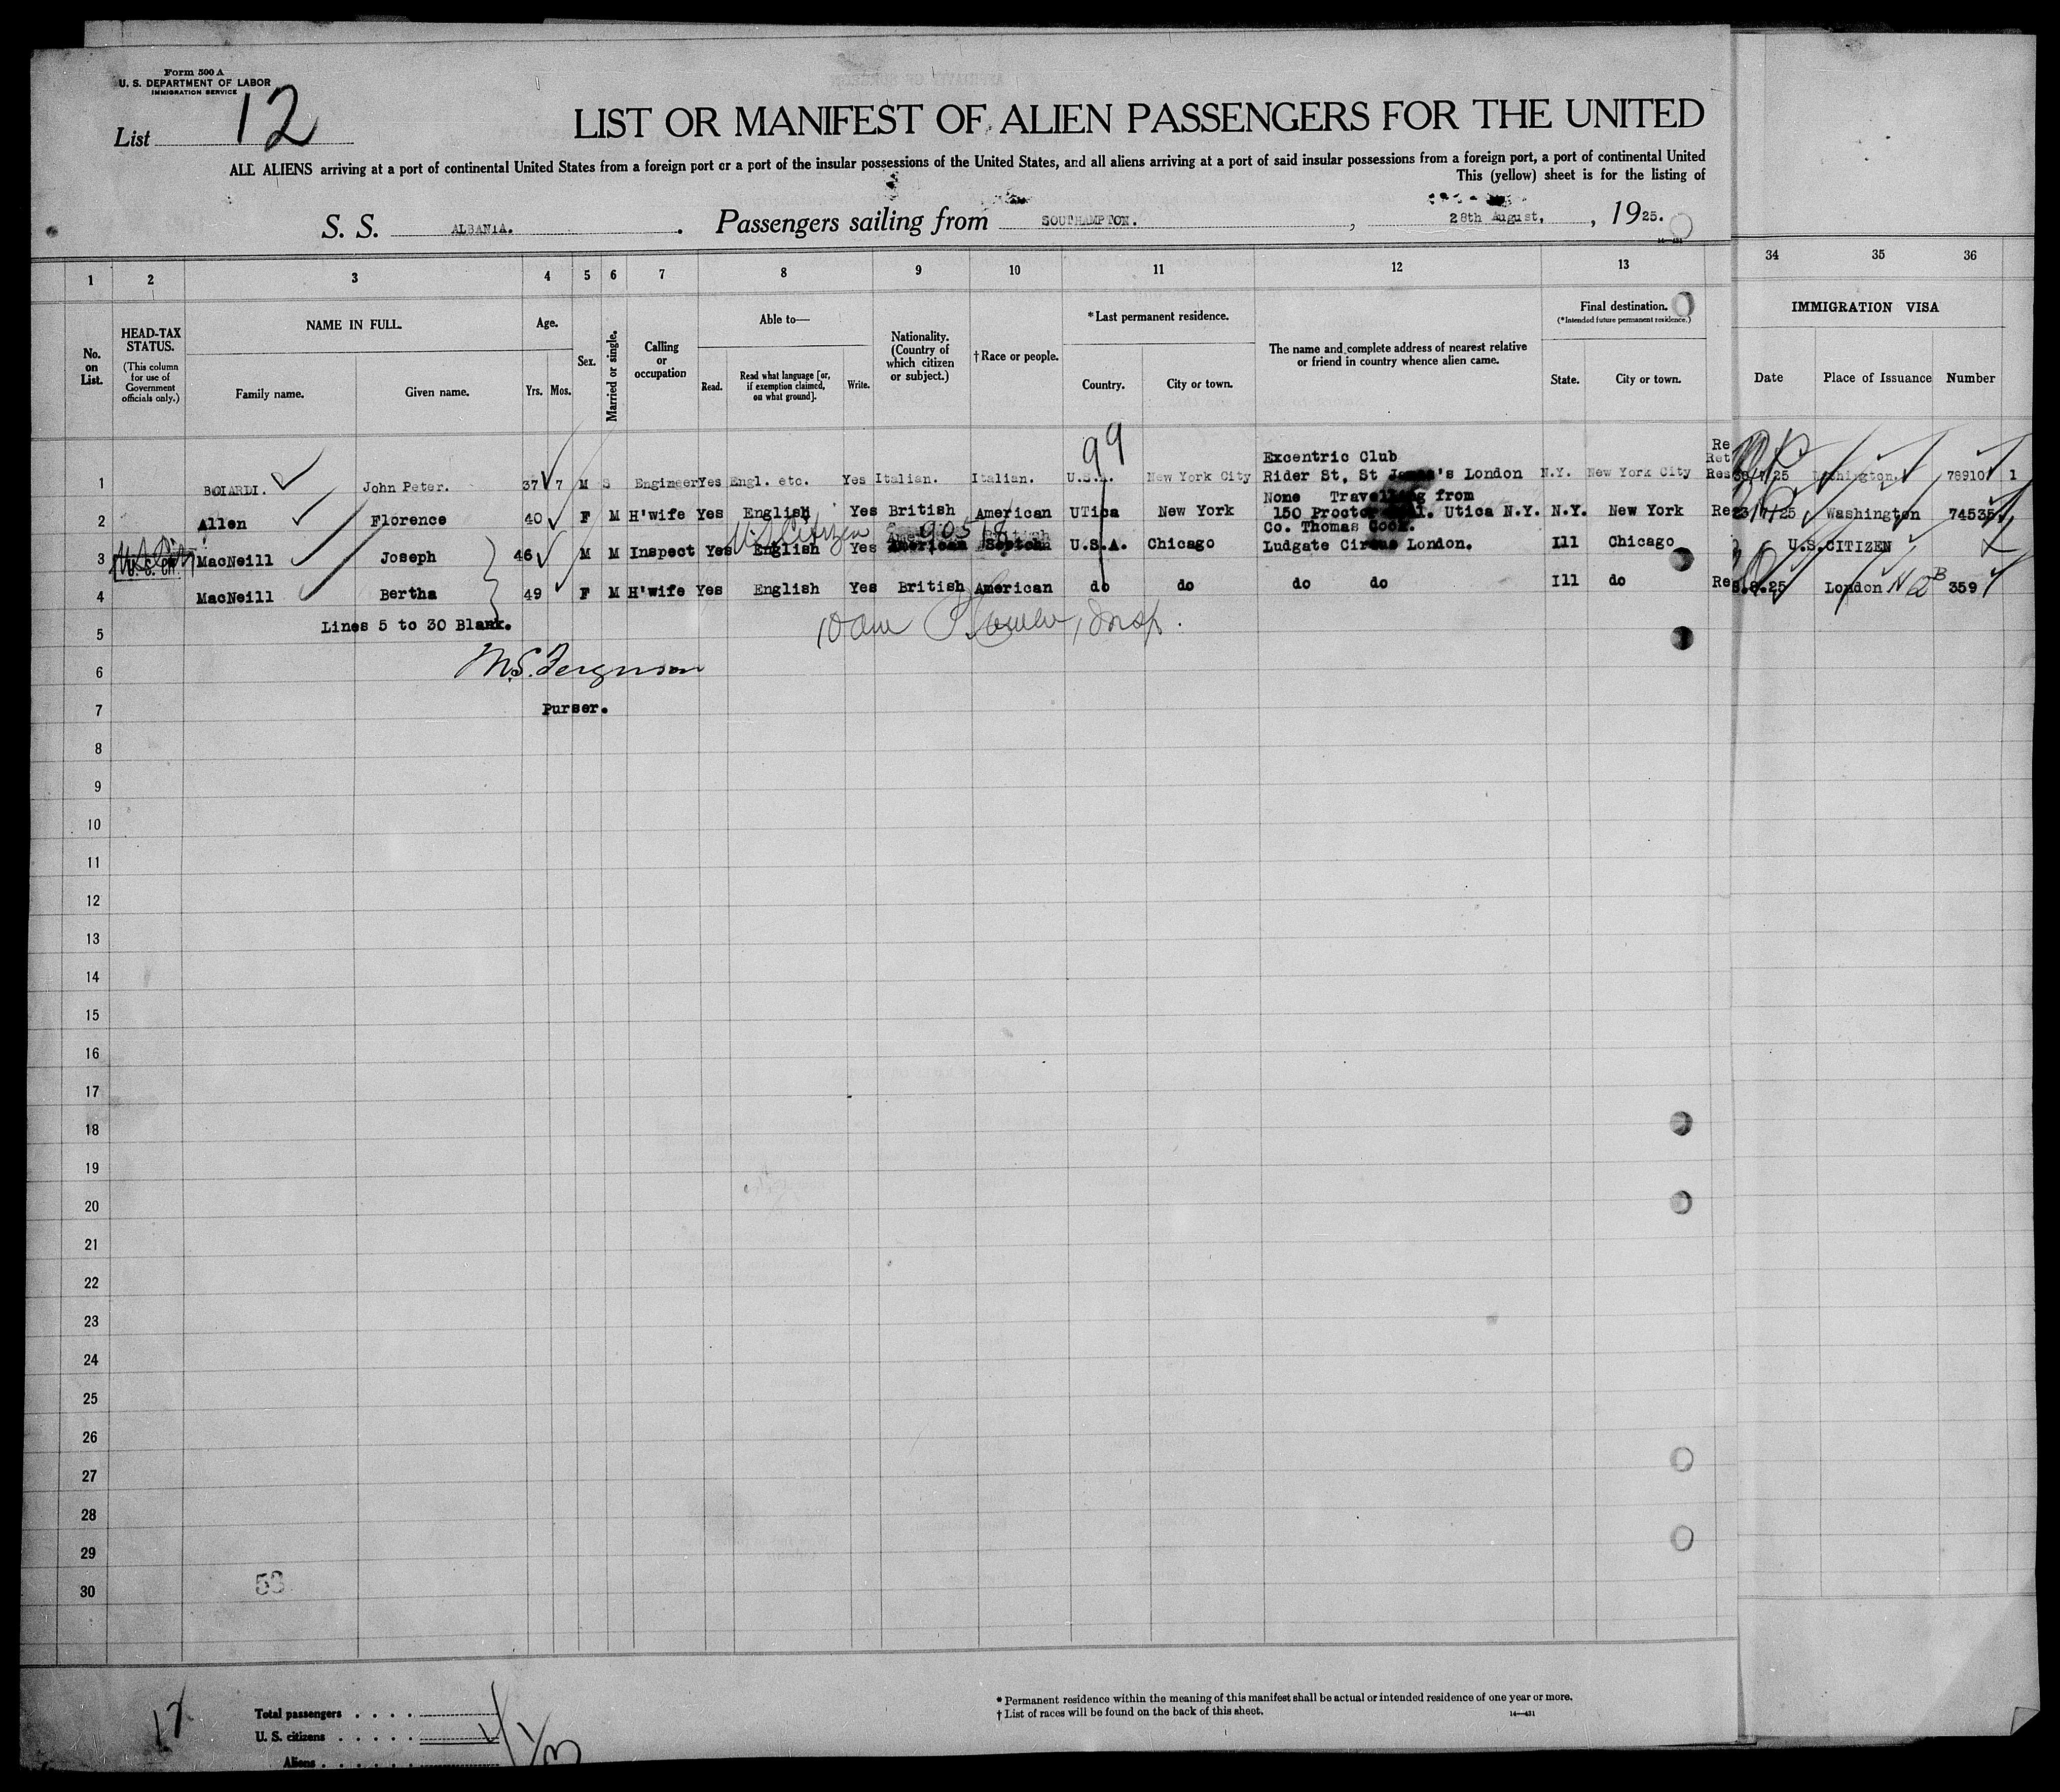 Form 500 A
U. S. DEPARTMENT OF LABOR
IMMIGRATION SERVICE
List 12
LIST OR MANIFEST OF ALIEN PASSENGERS FOR THE UNITED
ALL ALIENS arriving at a port of continental United States from a foreign port or a port of the insular possessions of the United States, and all aliens arriving at a port of said insular possessions from a foreign port, a port of continental United
This (yellow) sheet is for the listing of
S. S. ALBANIA. Passengers sailing from SOUTHAMPTON. , 28th August, , 1925.
1 2 3 4 5 6 7 8 9 10 11 12 13 34 35 36
No. on List.
HEAD-TAX STATUS.
(This column for use of Government officials only.)
NAME IN FULL.
Family name. Given name.
Age.
Yrs. Mos.
Sex.
Married or single.
Calling or occupation
Able to—
Read. Read what language [or, if exemption claimed, on what ground]. Write.
Nationality. (Country of which citizen or subject.)
†Race or people.
*Last permanent residence.
Country. City or town.
The name and complete address of nearest relative or friend in country whence alien came.
Final destination.
(*Intended future permanent residence.)
State. City or town.
IMMIGRATION VISA
Date Place of Issuance Number
99
Excentric Club Re
Ret
1 BOIARDI. John Peter. 37 7 M S Engineer Yes Engl. etc. Yes Italian. Italian. U.S.A. New York City Rider St, St James's London N.Y. New York City Res /7/25 Washington. 78910 1
None Travelling from
2 Allen Florence 40 F M H'wife Yes English Yes British American UTica New York 150 Proctor Utica N.Y. N.Y. New York Re 23/7/25 Washington 74535
U.S. Citizen 90518 Co. Thomas Cook.
3 U. S. CIT. MacNeill Joseph 46 M M Inspect Yes English Yes American U.S.A. Chicago Ludgate Circus London. Ill Chicago U.S.CITIZEN
4 MacNeill Bertha 49 F M H'wife Yes English Yes British American do do do do Ill do Re .8.25 London 359
5 Lines 5 to 30 Blank.
6 M.S. Ferguson
7 Purser.
8
9
10
11
12
13
14
15
16
17
18
19
20
21
22
23
24
25
26
27
28
29
30
53
Total passengers . . . .
U. S. citizens . . . . . 1
Aliens . . . . . . 3
* Permanent residence within the meaning of this manifest shall be actual or intended residence of one year or more.
† List of races will be found on the back of this sheet. 14—431